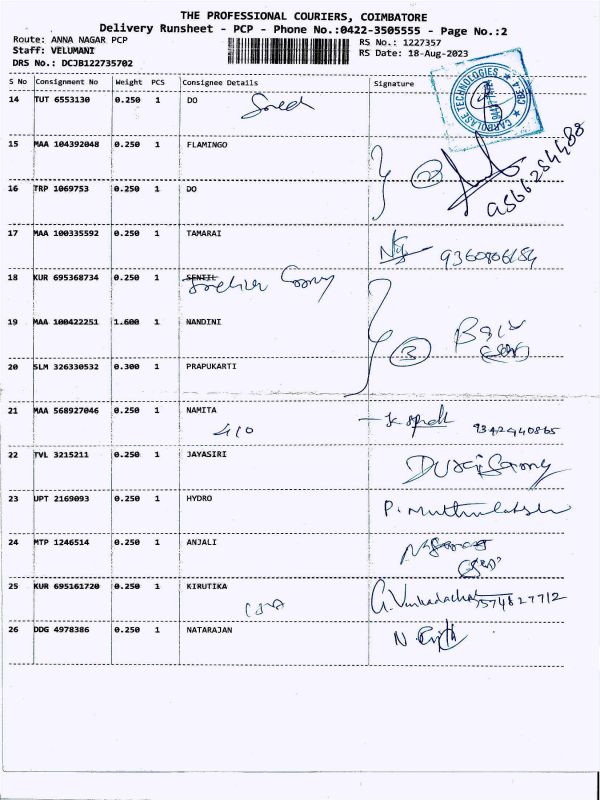 THE PROFESSIONAL COURIERS, COIMBATORE
Delivery Runsheet - PCP - Phone No.:0422-3505555 - Page No.:2
Route: ANNA NAGAR PCP RS No.: 1227357
Staff: VELUMANI RS Date: 18-Aug-2023
DRS No.: DCJB122735702
S No Consignment No Weight PCS Consignee Details Signature
CARBOLASE TECHNOLOGIES CBE-4
14 TUT 6553130 0.250 1 DO
15 MAA 104392048 0.250 1 FLAMINGO
2
9566284488
16 TRP 1069753 0.250 1 DO
17 MAA 100335592 0.250 1 TAMARAI
18 KUR 695368734 0.250 1 SENTIL
19 MAA 100422251 1.600 1 NANDINI
3
20 SLM 326330532 0.300 1 PRAPUKARTI
21 MAA 568927046 0.250 1 NAMITA
9342940865
22 TVL 3215211 0.250 1 JAYASIRI
23 UPT 2169093 0.250 1 HYDRO
P. Muthulakshmi
24 MTP 1246514 0.250 1 ANJALI
25 KUR 695161720 0.250 1 KIRUTIKA
G. Venkadachal 7574827712
26 DDG 4978386 0.250 1 NATARAJAN